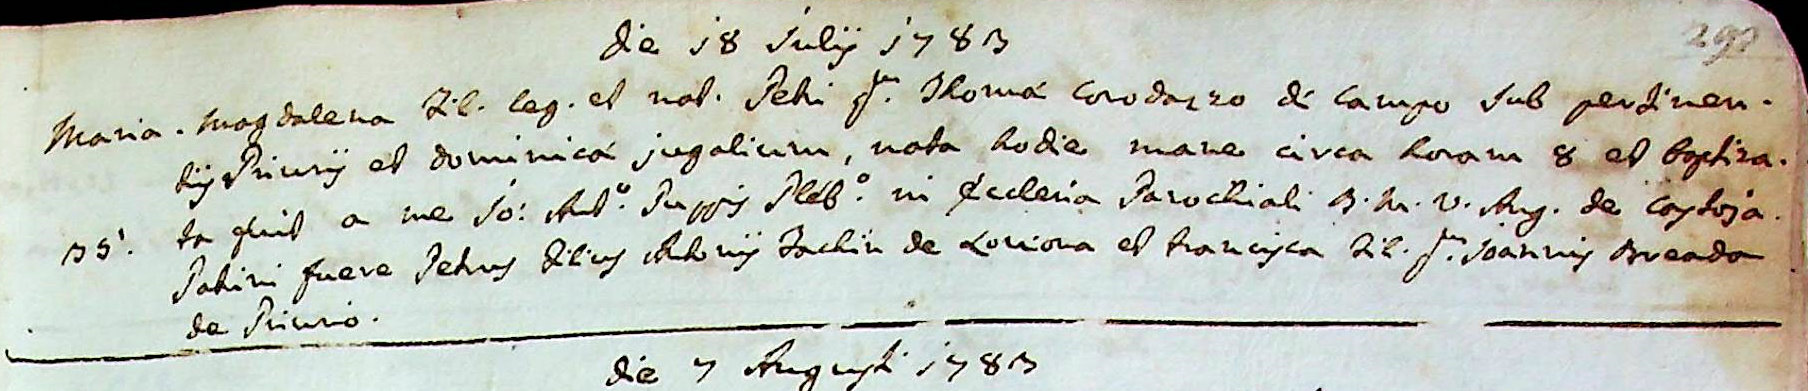 die 18 Julij 1783
292
Maria. Magdalena Fil. leg. et nat. Petri qm. Thomæ Corodazzo de Campo sub pertinen-
tijs Priurij et Dominicæ jugalium, nata hodie mane circa horam 8 et baptiza-
35. ta fuit a me Jo: Ant.o Puppis Pleb.o in Ecclesia Parochiali B. M. V. Ang. de Costoja.
Patrini fuere Petrus Filius Antonij Zachin de Loriona et Francisca Fil. qm. Joannis Breada
de Priurio.
die 7 Augusti 1783